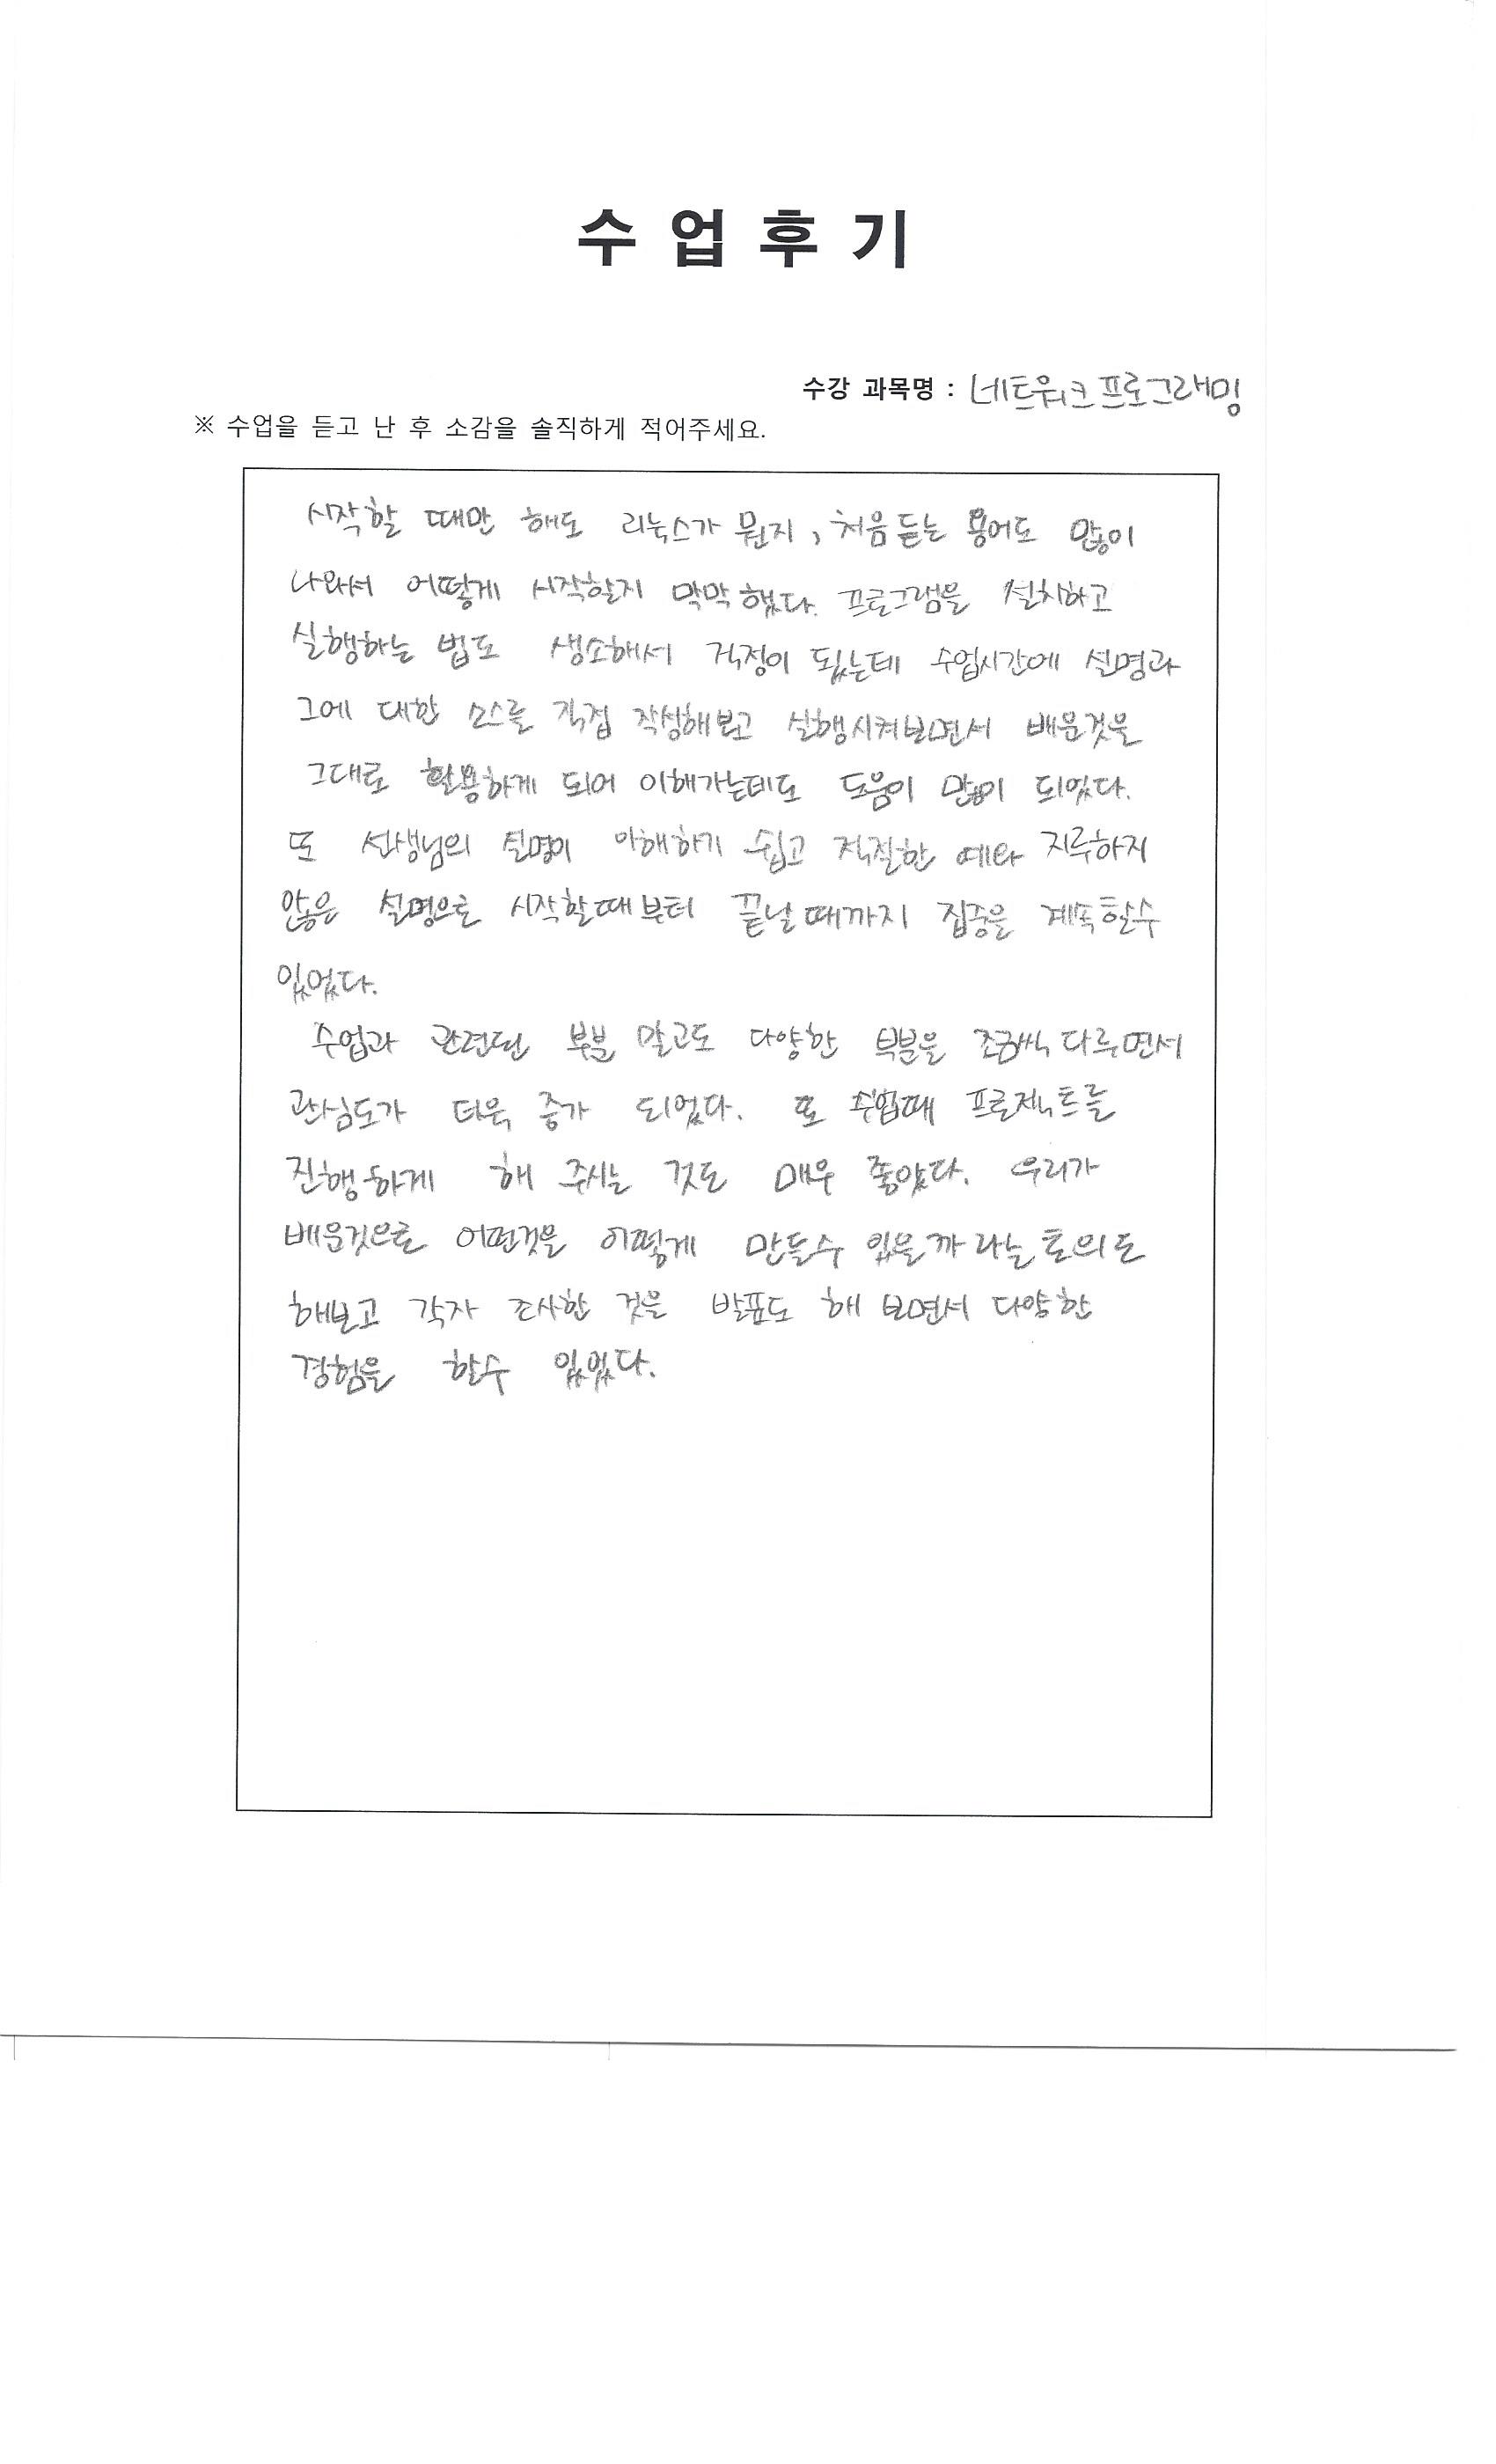 수 업 후 기
수강 과목명 : 네트워크프로그래밍
※ 수업을 듣고 난 후 소감을 솔직하게 적어주세요.
시작할 때만 해도 리눅스가 뭔지, 처음 듣는 용어도 많이
나와서 어떻게 시작할지 막막했다. 프로그램을 설치하고
실행하는 법도 생소해서 걱정이 됬는데 수업시간에 설명과
그에 대한 소스를 직접 작성해보고 실행시켜보면서 배운것을
그대로 활용하게 되어 이해가는데도 도움이 많이 되었다.
또 선생님의 설명이 이해하기 쉽고 적절한 예와 지루하지
않은 설명으로 시작할때부터 끝날때까지 집중을 계속할수
있었다.
수업과 관련된 부분 말고도 다양한 부분을 조금씩 다루면서
관심도가 더욱 증가 되었다. 또 수업때 프로젝트를
진행하게 해 주시는 것도 매우 좋았다. 우리가
배운것으로 어떤것을 어떻게 만들수 있을까 라는 토의도
해보고 각자 조사한 것을 발표도 해 보면서 다양한
경험을 할수 있었다.